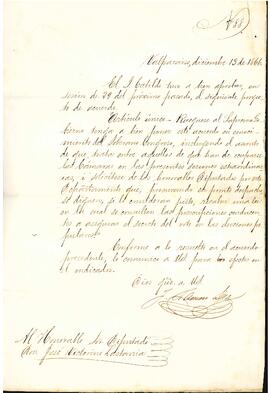 Valparaiso, diciembre 13 de 1866.
El I. Cabildo tuvo a bien aprobar, en
sesion de 29 del próximo pasado, el siguiente proyec-
to de acuerdo.
Artículo único - Ruéguese al Supremo Go
bierno tenga a bien poner este acuerdo en conoci-
miento del Soberano Congreso, incluyendo el asunto
de que trata entre aquellos de que han de ocuparse
las Cámaras en las presentes sesiones estraordina-
rias, i solicítese de los honorables Diputados por este
Departamento que, promoviendo su pronto despacho,
se dignen, si lo consideran justo, recabar una lei
en la cual se consulten las prescripciones conducen-
tes a asegurar el secreto del voto en las elecciones po-
pulares."
Conforme a lo resuelto en el acuerdo
precedente, lo comunico a Ud para los efectos en
él indicados.
Dios gde. a Ud
Al Honorable Sor Diputado
Don José Victorino Lastarria